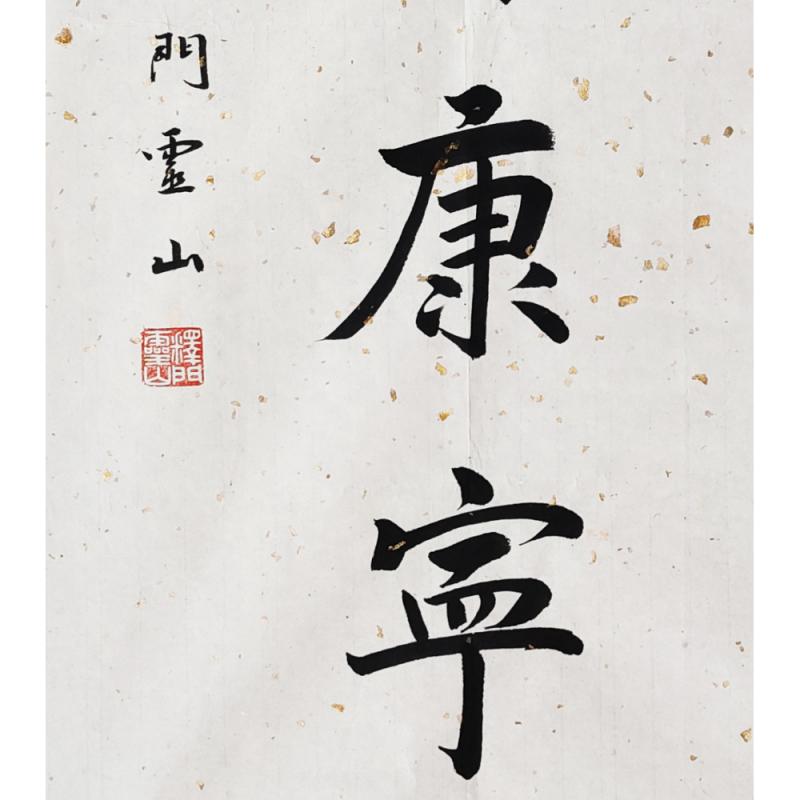 康寧
門靈山
釋門
靈山